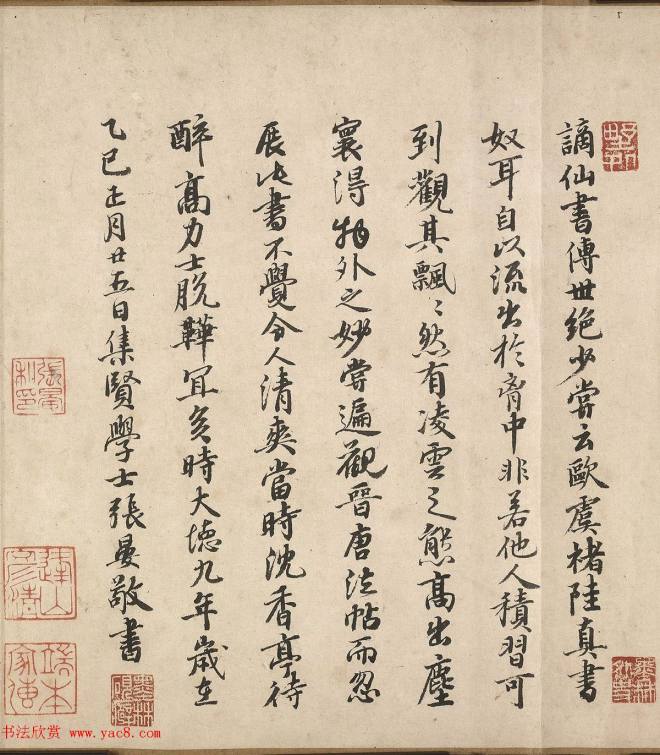 謫仙書傳世絕少嘗云歐虞褚陸真書
奴耳自以流出於胷中非若他人積習可
到觀其飄〻然有凌雲之態高出塵
寰得物外之妙嘗遍觀晉唐法帖而忽
展此書不覺令人清爽當時沈香亭待
醉高力士脫鞾宜矣時大德九年歲在
乙巳正月廿五日集賢學士張晏敬書
張晏
私印
端本
家傳
书法欣赏 www.yac8.com